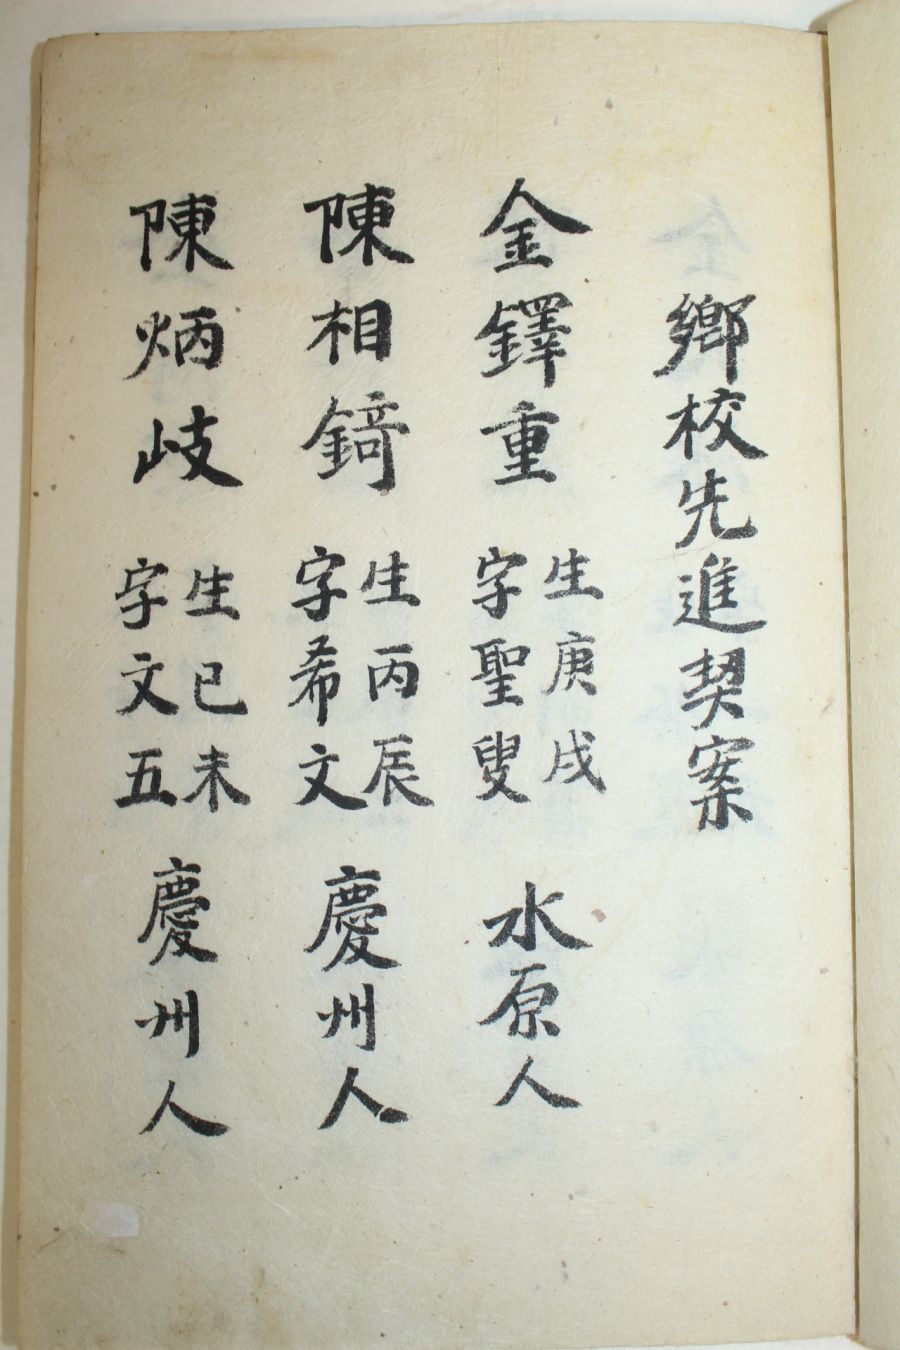 鄉校先進契案
金鐸重 生庚戌 字聖叟 水原人
陳相錡 生丙辰 字希文 慶州人
陳炳岐 生已未 字文五 慶州人